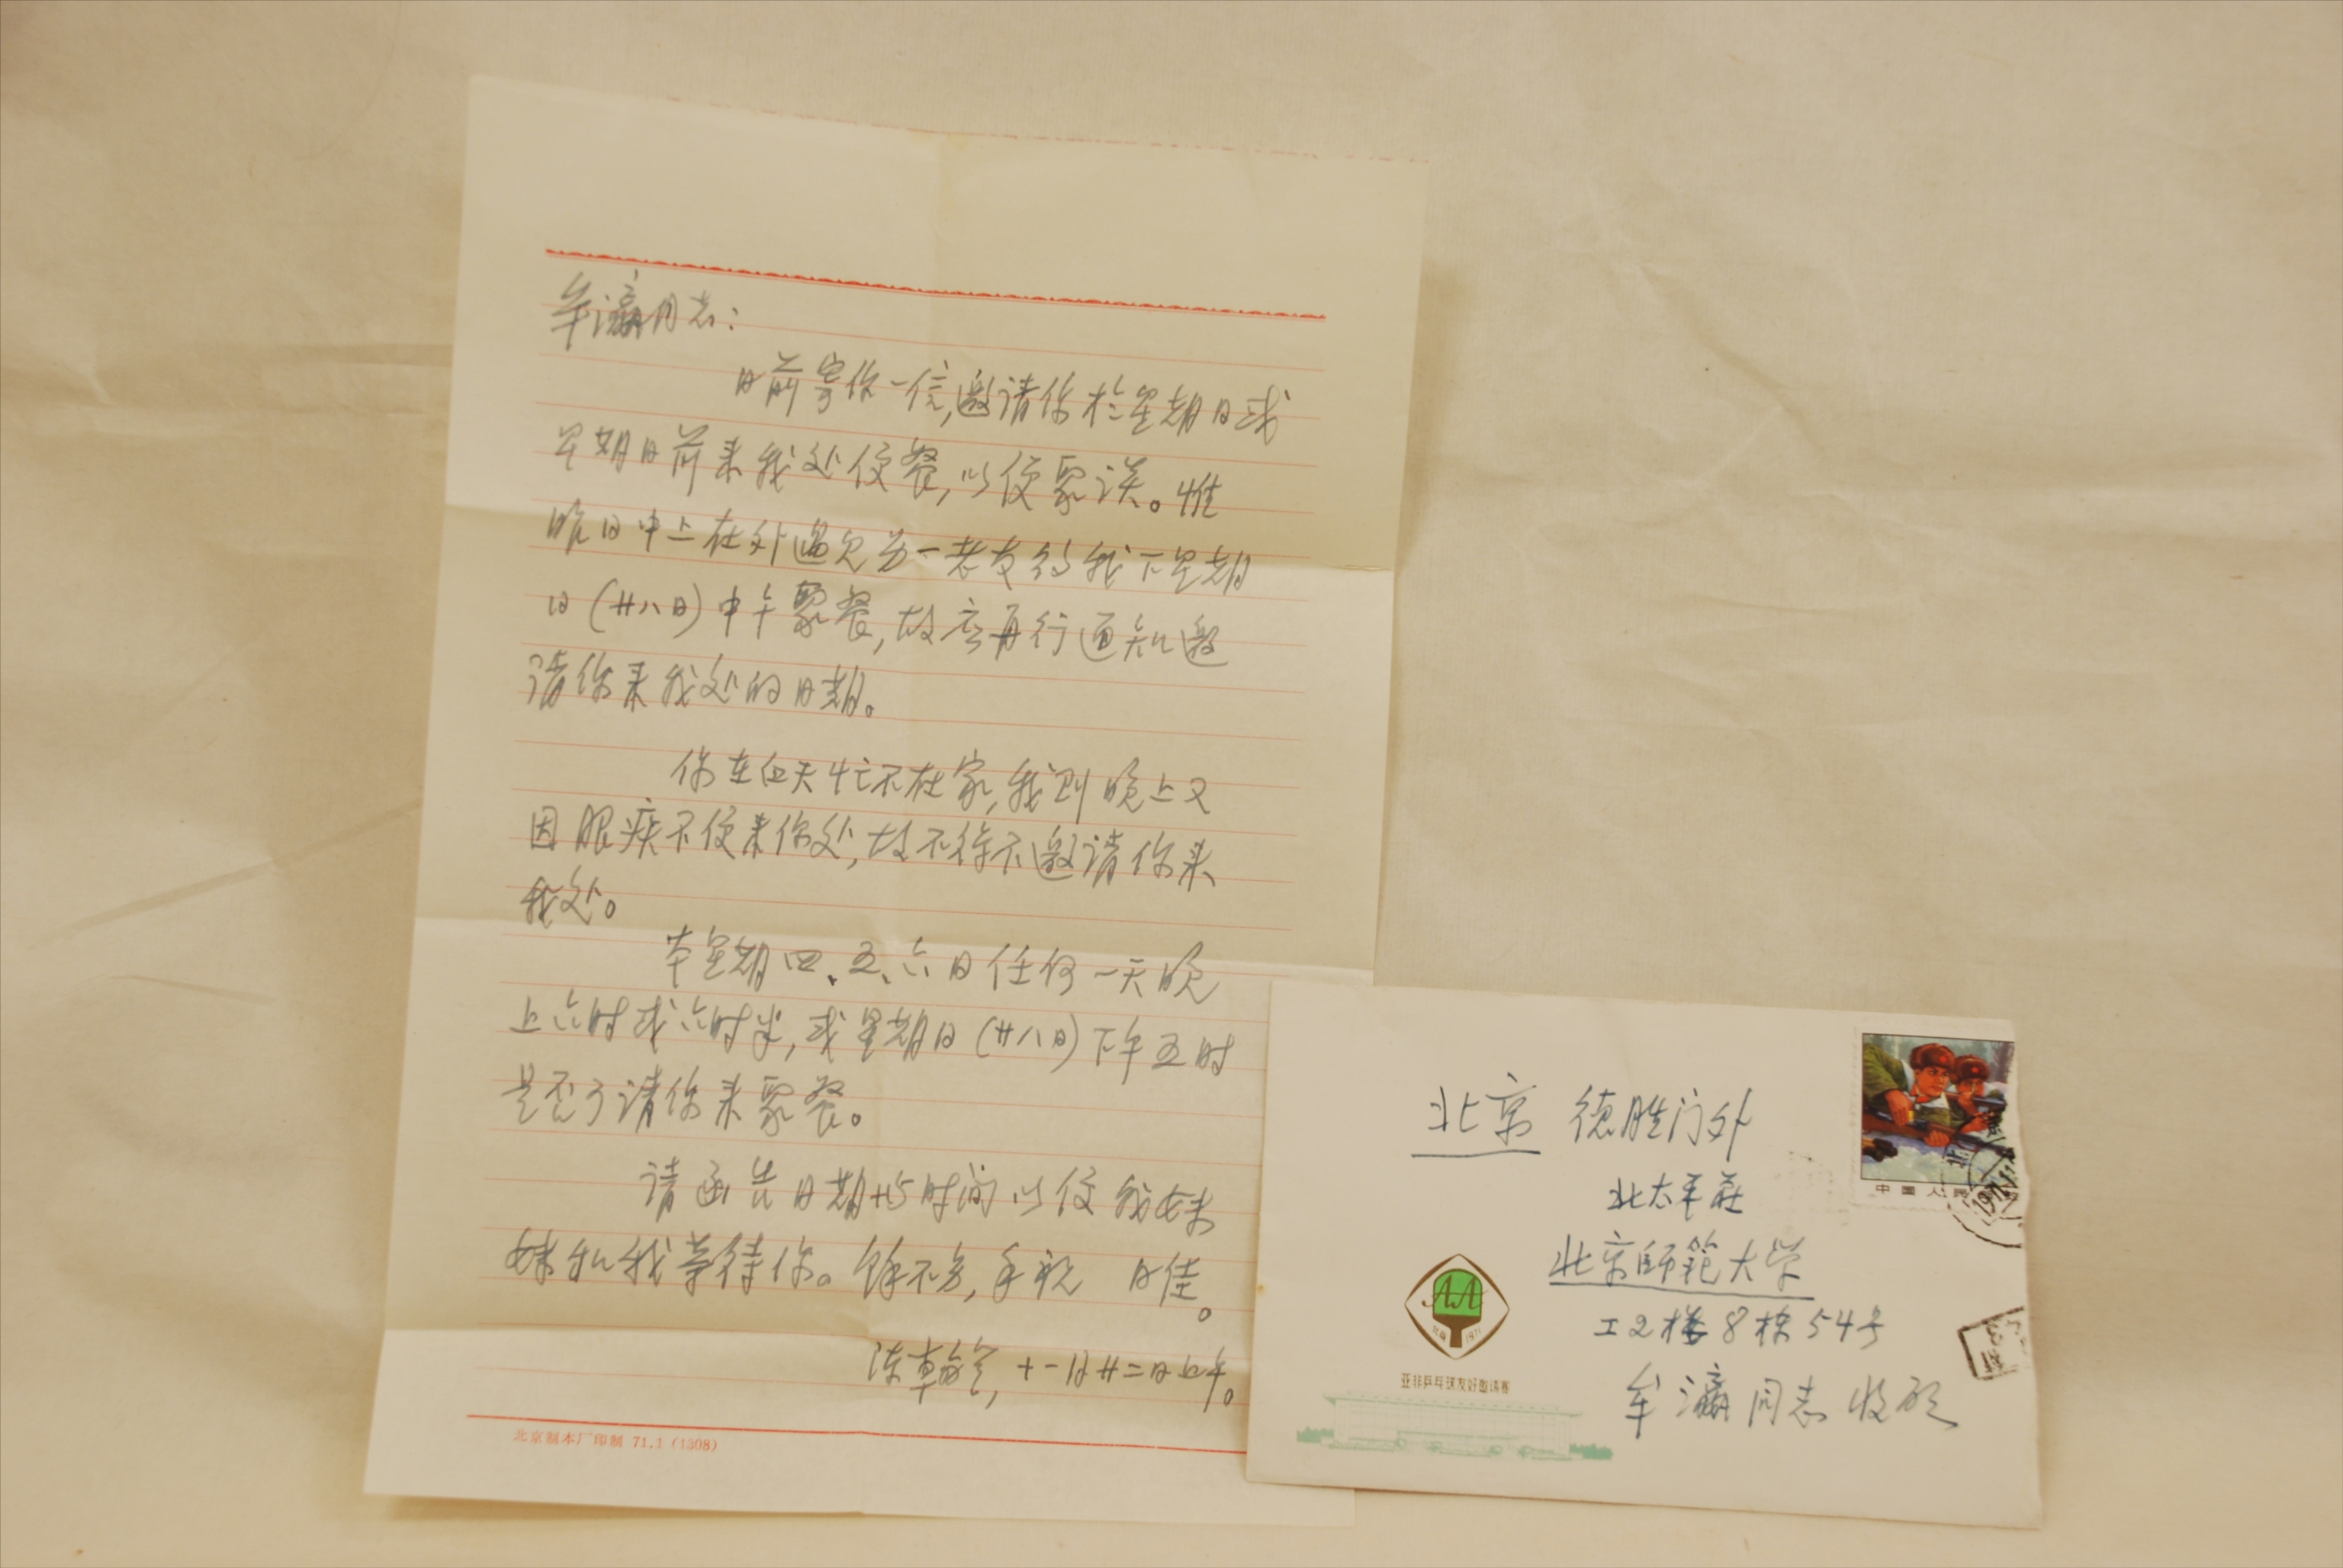 牟瀛同志:
日前寄你一信,邀请你於星期日或
星期日前来我处便餐,以便聚谈。惟
昨日中上在外遇见另一老友约我下星期
日(廿八日)中午聚餐,故应再行通知邀
请你来我处的日期。
你在白天忙不在家,我则晚上又
因眼疾不便来你处,故不得不邀请你来
我处。
本星期四、五、六日任何一天晚
上六时或六时半,或星期日(廿八日)下午五时
是否可请你来聚餐。
请函告日期与时间以便我妹
妹和我等待你。余不多,手祝 日佳。
陈翰笙,十一月廿二日上午。
北京制本厂印制 71.1 (1308)
北京 德胜门外
北太平庄
北京师範大学
工2楼8栋54号
牟瀛同志收啟
中国人民
AA
1971
亚非乒乓球友好邀请赛